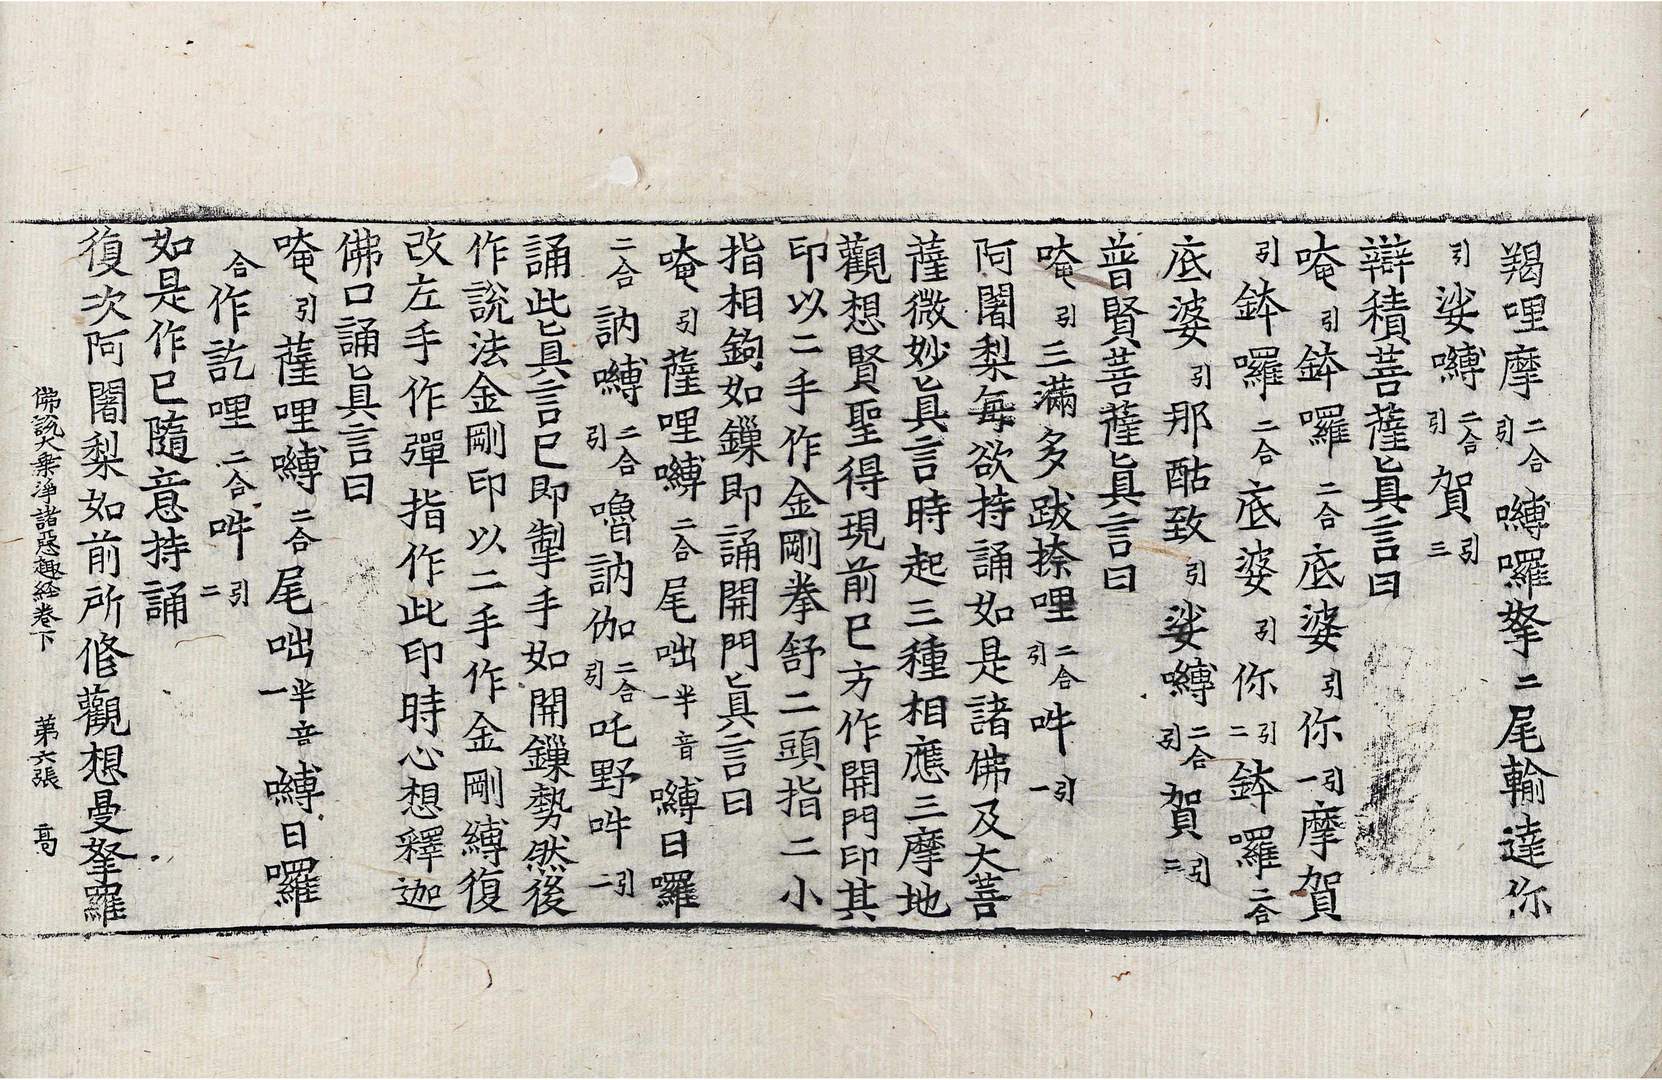 羯哩摩二合引嚩囉拏二尾輸達你
引娑嚩二合引賀引三
辯積菩薩眞言曰
唵引鉢囉二合底婆引你引一摩賀
引鉢囉二合底婆引你引二鉢囉二合
底婆引那酤致引娑嚩二合引賀引三
普賢菩薩眞言曰
唵引三滿多跋捺哩二合引吽引一
阿闍梨每欲持誦如是諸佛及大菩
薩微妙眞言時起三種相應三摩地
觀想賢聖得現前已方作開門印其
印以二手作金剛拳舒二頭指二小
指相鉤如鏁即誦開門眞言曰
唵引薩哩嚩二合尾咄半音一嚩日囉
二合訥嚩二合引嚕訥伽二合引吒野吽引二
誦此眞言已即掣手如開鏁勢然後
作說法金剛印以二手作金剛縛復
改左手作彈指作此印時心想釋迦
佛口誦眞言曰
唵引薩哩嚩二合尾咄半音一嚩日囉
合作訖哩二合吽引二
如是作已隨意持誦
復次阿闍梨如前所修觀想曼拏羅
佛說大乘淨諸惡趣經卷下 第六張 高